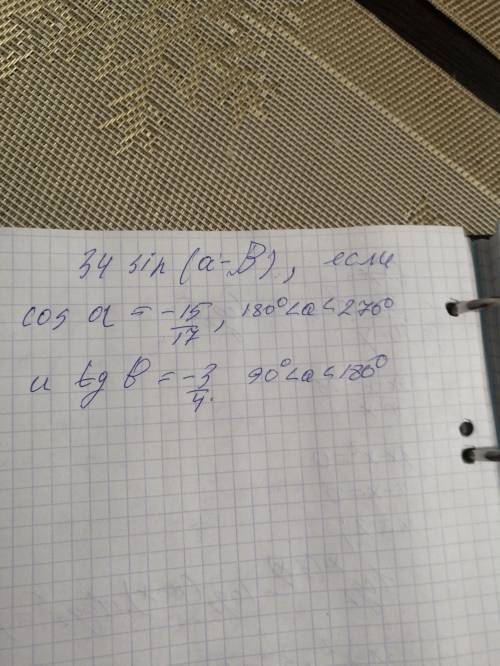 34 sin (a-B), если
cos a = -15/17, 180°<a<270°
и tg B = -3/4. 90°<a<180°